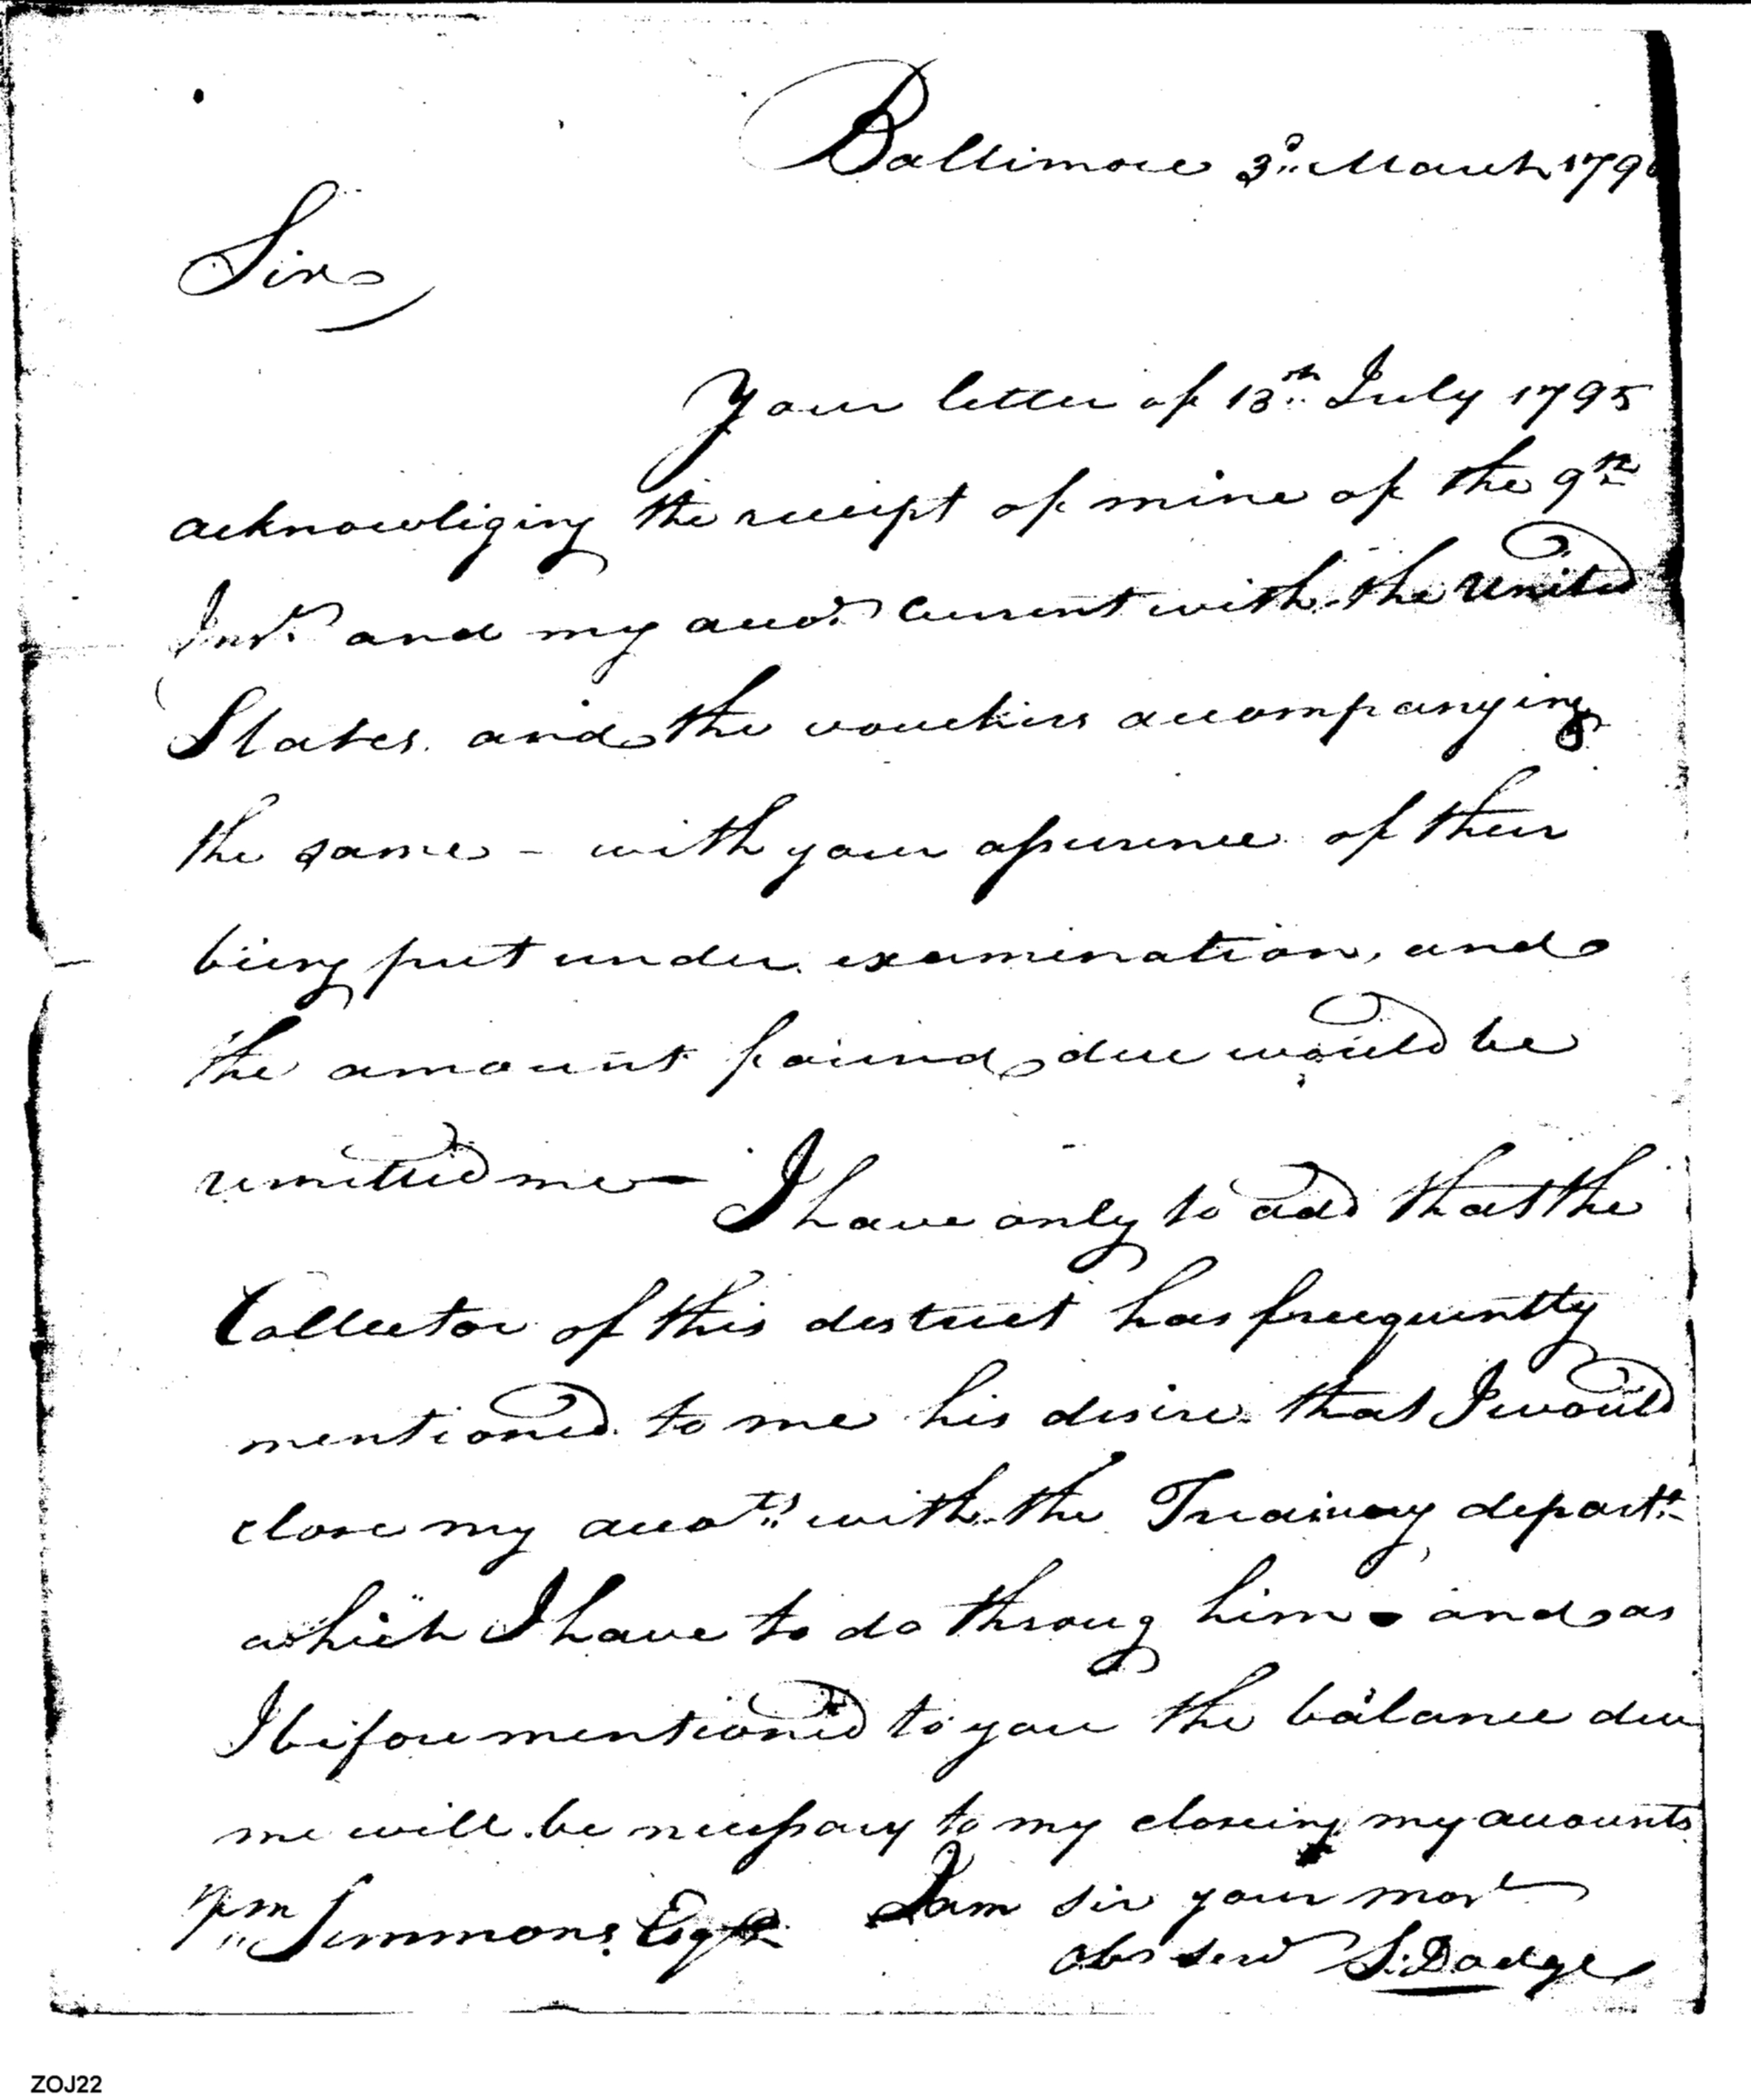 Baltimore 3d March 179
Sir
Your letter of 13th July 1795
acknowliging the receipt of mine of the 9th
Inst. and my accot. Current with the United
States and the vouchers accompanying
the same - with your assurence of their
being put under examination, and
the amount found due would be
remitted me — I have only to add that the
Collector of this destrict has freequently
mentioned to me his desire that I would
close my accots. with the Treasury departt.
which I have to do throug him - and as
I before mentioned to you the balance due
me will be necessary to my closeing my accounts
I am sir your most
Wm Simmons Esqr
Obt servt S. Dodge
ZOJ22